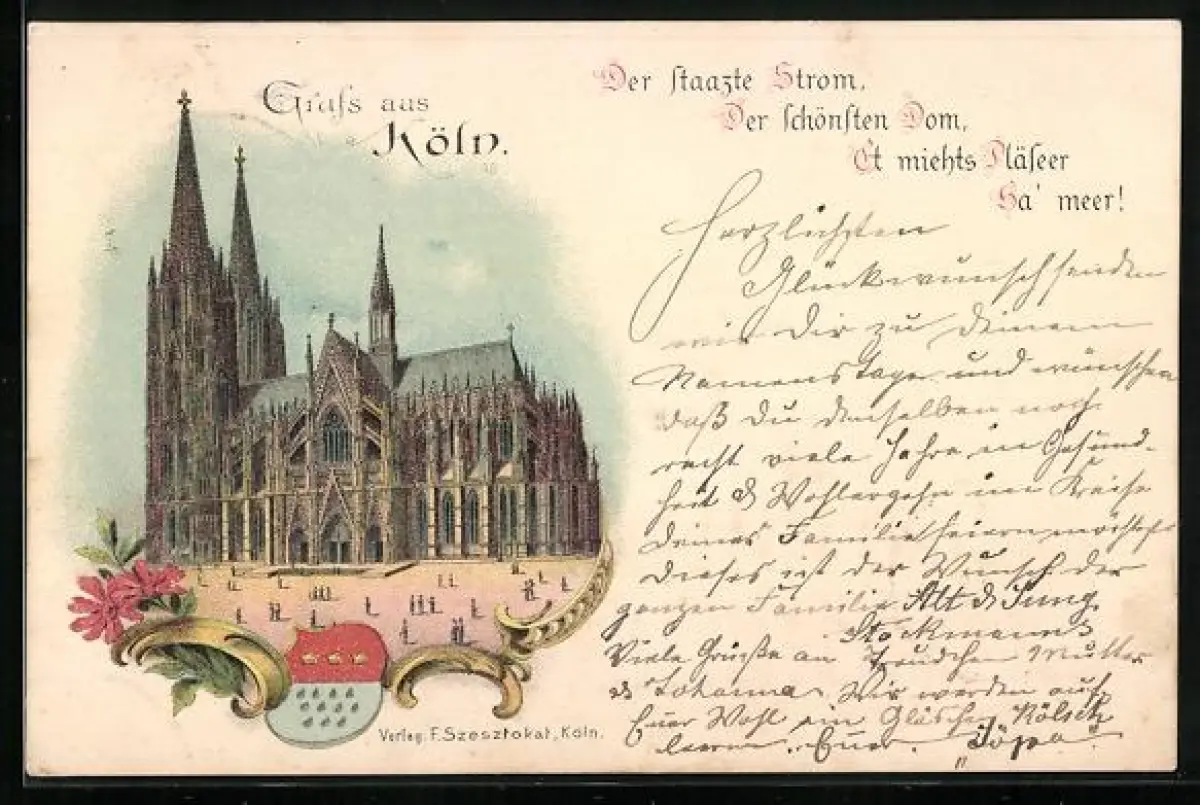 Gruss aus
Köln.
Der staazte Strom,
Der schönsten Dom,
Et miehts Pläseer
Ha' meer!
Herzlichsten
Glückwunsch senden
wir Dir zu Deinem
Namenstage und wünschen
daß Du denselben noch
recht viele Jahre in Gesund-
heit & Wohlergehn im Kreise
Deiner Familie feiern möchtest
Dieses ist der Wunsch der
ganzen Familie Alt & Jung
Stockmanns
Viele Grüße an Trudchen Mutter
& Johanna. Wir werden auf
Euer Wohl ein Gläschen Kölsch
leeren. Euer
Verlag: F. Szesztokat, Köln.